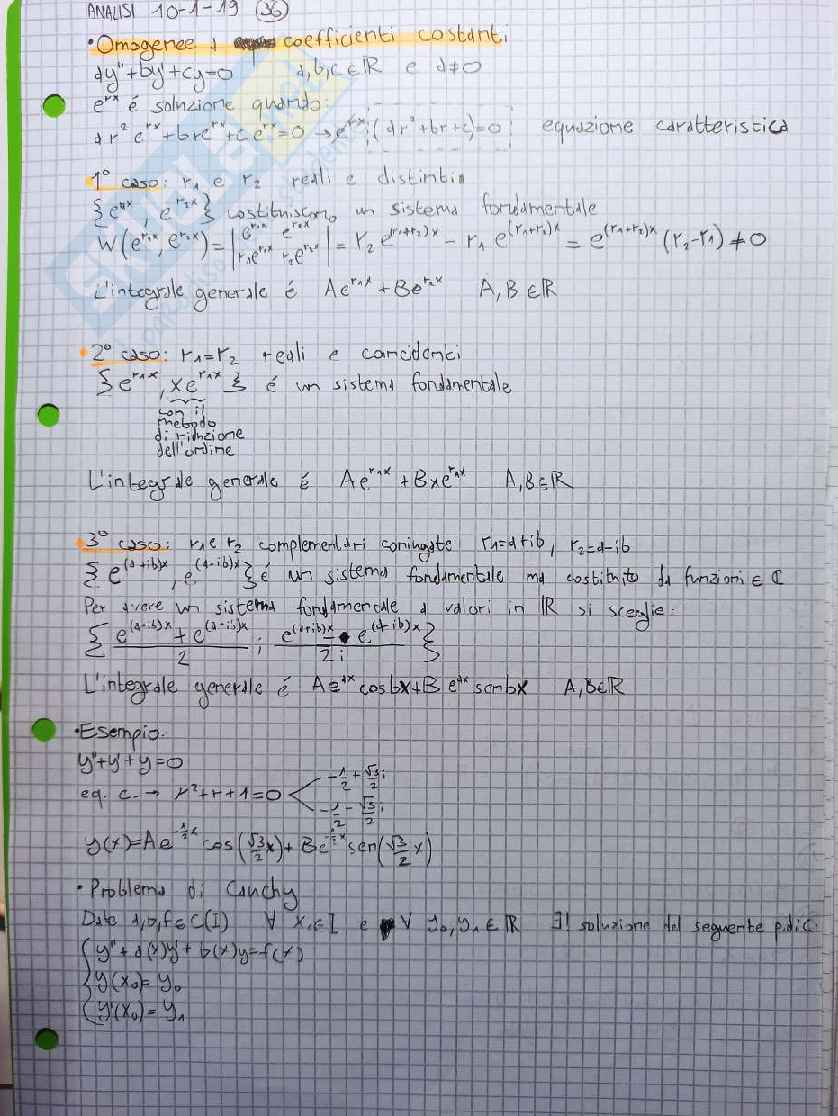 ANALISI 10-1-19 (36)
• Omogenee a coefficienti costanti
ay"+by'+cy=0 a,b,c∈ℝ e a≠0
e^{rx} é soluzione quando:
ar² e^{rx}+bre^{rx}+ce^{rx}=0 → e^{rx}(ar²+br+c)=0 equazione caratteristica
1° caso: r₁ e r₂ reali e distinti
{e^{r₁x}, e^{r₂x}} costituiscono un sistema fondamentale
W(e^{r₁x}, e^{r₂x}) = |e^{r₁x} e^{r₂x}; r₁e^{r₁x} r₂e^{r₂x}| = r₂ e^{(r₁+r₂)x} - r₁ e^{(r₁+r₂)x} = e^{(r₁+r₂)x} (r₂-r₁) ≠ 0
L'integrale generale é Ae^{r₁x}+Be^{r₂x} A,B∈ℝ
• 2° caso: r₁=r₂ reali e coincidenti
{e^{r₁x}, xe^{r₁x}} é un sistema fondamentale
con il
metodo
di riduzione
dell'ordine
L'integrale generale é Ae^{r₁x}+Bxe^{r₁x} A,B∈ℝ
• 3° caso: r₁ e r₂ complementari coniugate r₁=a+ib, r₂=a-ib
{e^{(a+ib)x}, e^{(a-ib)x}} é un sistema fondamentale ma costituito da funzioni ∈ ℂ
Per avere un sistema fondamentale a valori in ℝ si sceglie:
{(e^{(a-ib)x}+e^{(a-ib)x})/2 ; (e^{(a+ib)x} - e^{(a-ib)x})/2i}
L'integrale generale é Ae^{ax}cosbx+B e^{ax}senbx A,B∈ℝ
• Esempio.
y"+y'+y=0
eq. c. → r²+r+1=0 < -1/2+√3/2 i
-1/2-√3/2 i
y(x)=Ae^{-1/2x} cos(√3/2 x)+Be^{-1/2x} sen(√3/2 x)
• Problema di Cauchy
Date a,b,f∈C(I) ∀ x₀∈I e ∀ y₀,y₁∈ℝ ∃! soluzione del seguente p.di C.
{y"+a(x)y'+b(x)y=f(x)
y(x₀)=y₀
y'(x₀)=y₁